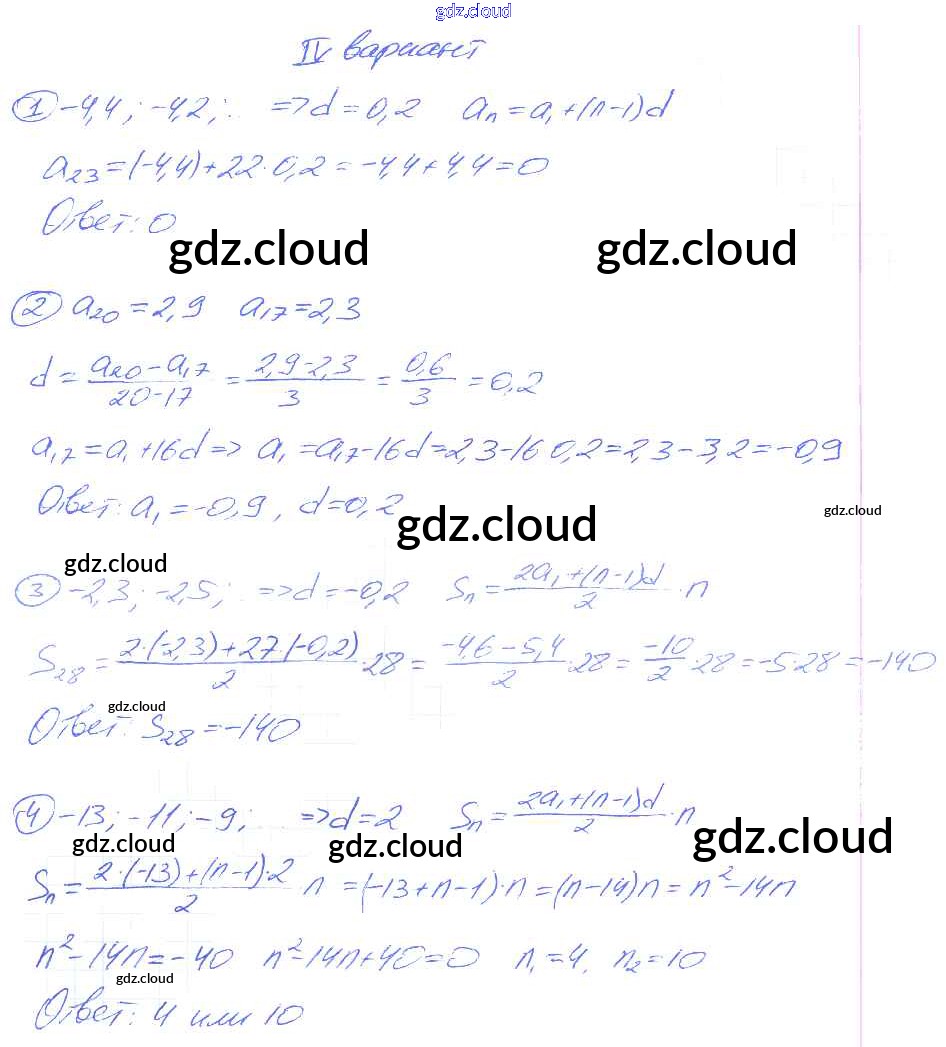 gdz.cloud
IV вариант
① -4,4; -4,2; ... => d = 0,2 aₙ = a₁ + (n-1)d
a₂₃ = (-4,4) + 22·0,2 = -4,4 + 4,4 = 0
Ответ: 0
gdz.cloud gdz.cloud
② a₂₀ = 2,9 a₁₇ = 2,3
d = (a₂₀ - a₁₇)/(20-17) = (2,9-2,3)/3 = 0,6/3 = 0,2
a₁₇ = a₁ + 16d => a₁ = a₁₇ - 16d = 2,3 - 16·0,2 = 2,3 - 3,2 = -0,9
Ответ: a₁ = -0,9, d = 0,2
gdz.cloud gdz.cloud
gdz.cloud
③ -2,3; -2,5; ... => d = -0,2 Sₙ = (2a₁ + (n-1)d)/2 · n
S₂₈ = (2·(-2,3) + 27·(-0,2))/2 · 28 = (-4,6 - 5,4)/2 · 28 = -10/2 · 28 = -5·28 = -140
gdz.cloud
Ответ: S₂₈ = -140
④ -13; -11; -9; ... => d = 2 Sₙ = (2a₁ + (n-1)d)/2 · n
gdz.cloud gdz.cloud gdz.cloud
Sₙ = (2·(-13) + (n-1)·2)/2 · n = (-13 + n - 1)·n = (n-14)n = n² - 14n
n² - 14n = -40 n² - 14n + 40 = 0 n₁ = 4, n₂ = 10
gdz.cloud
Ответ: 4 или 10